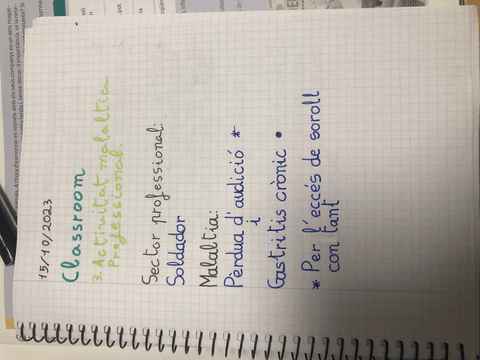 15/10/2023
Classroom
3. Activitat malaltia
professional.
Sector professional:
Soldador
Malaltia:
Pèrdua d'audició *
i
Gastritis crònic •
* Per l'eccés de soroll
con tant